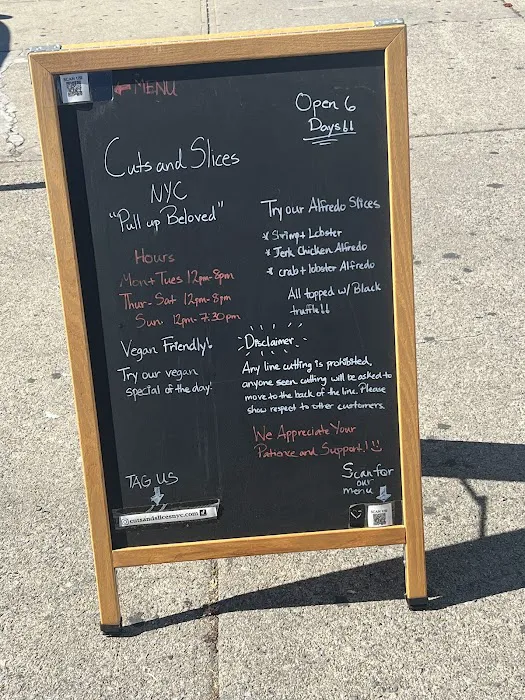 SCAN US
MENU
Open 6
Days!!
Cuts and Slices
NYC
"Pull up Beloved"
Try our Alfredo Slices
* Shrimp + Lobster
* Jerk Chicken Alfredo
* crab + lobster Alfredo
All topped w/ Black
truffle!!
Hours
Mon + Tues 12pm-8pm
Thur - Sat 12pm-8pm
Sun. 12pm-7:30pm
Vegan Friendly!
Try our vegan
special of the day!
Disclaimer
Any line cutting is prohibited,
anyone seen cutting will be asked to
move to the back of the line. Please
show respect to other customers.
We Appreciate Your
Patience and Support!
TAG US
cutsandslicesnyc.com
Scan for
our
menu
SCAN US